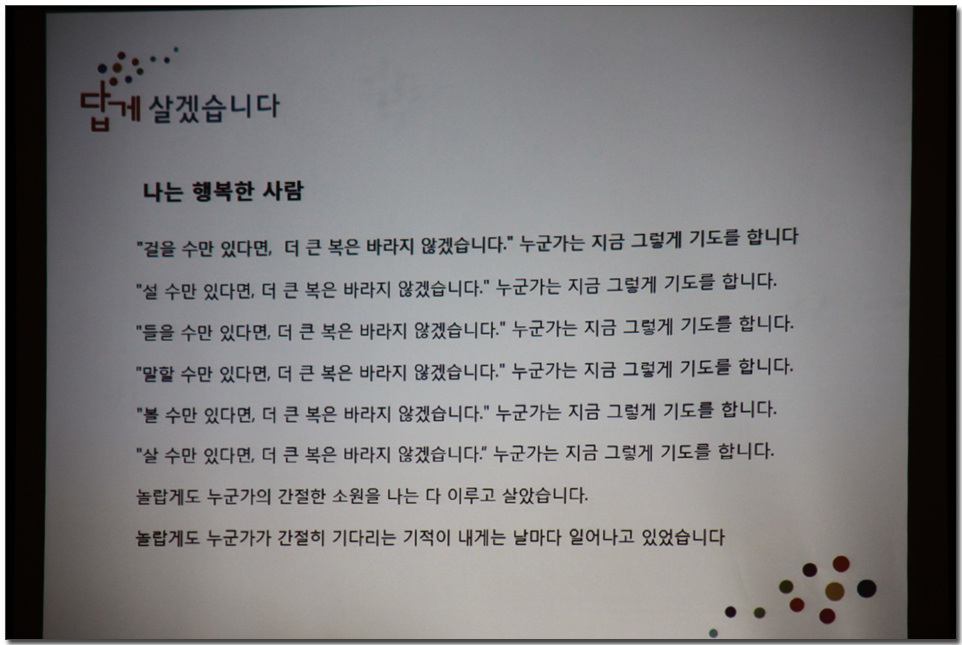 답게 살겠습니다
나는 행복한 사람
"걸을 수만 있다면,  더 큰 복은 바라지 않겠습니다." 누군가는 지금 그렇게 기도를 합니다
"설 수만 있다면, 더 큰 복은 바라지 않겠습니다." 누군가는 지금 그렇게 기도를 합니다.
"들을 수만 있다면, 더 큰 복은 바라지 않겠습니다." 누군가는 지금 그렇게 기도를 합니다.
"말할 수만 있다면, 더 큰 복은 바라지 않겠습니다." 누군가는 지금 그렇게 기도를 합니다.
"볼 수만 있다면, 더 큰 복은 바라지 않겠습니다." 누군가는 지금 그렇게 기도를 합니다.
"살 수만 있다면, 더 큰 복은 바라지 않겠습니다.” 누군가는 지금 그렇게 기도를 합니다.
놀랍게도 누군가의 간절한 소원을 나는 다 이루고 살았습니다.
놀랍게도 누군가가 간절히 기다리는 기적이 내게는 날마다 일어나고 있었습니다